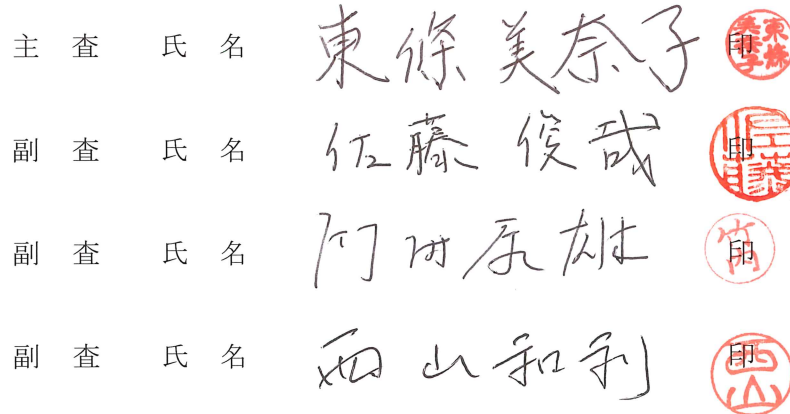 主査 氏名 東條美奈子 印
副査 氏名 佐藤俊哉 印
副査 氏名 竹内康雄 印
副査 氏名 西山和利 印